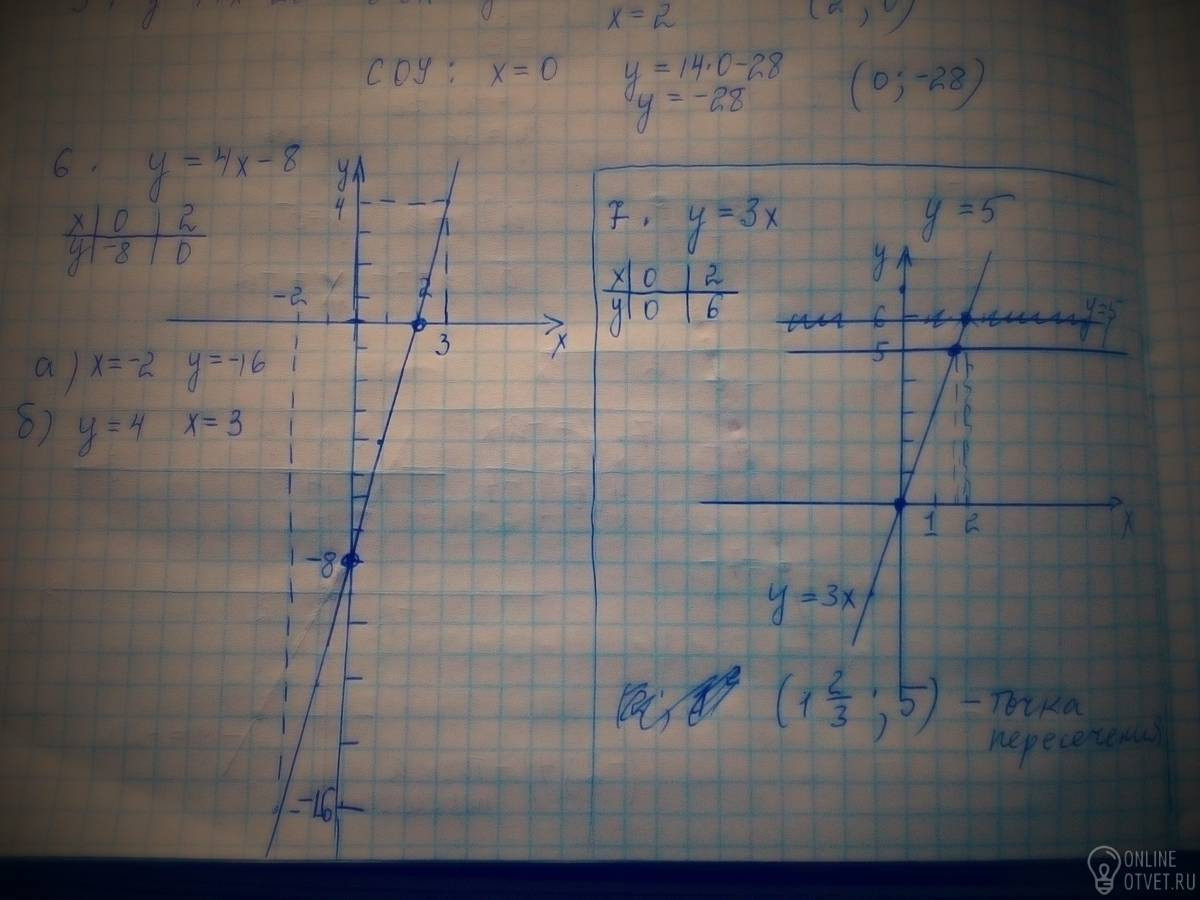 x=2
СОУ: x=0 y=14·0-28 (0; -28)
y=-28
6. y=4x-8
x 0 2
y -8 0
y
4
-2
2
3
x
а) x=-2 y=-16
б) y=4 x=3
-8
-16
7. y=3x y=5
x 0 2
y 0 6
y
6
y=5
5
1 2
x
y=3x
(1 2/3; 5) - точка
пересечения
ONLINE
OTVET.RU